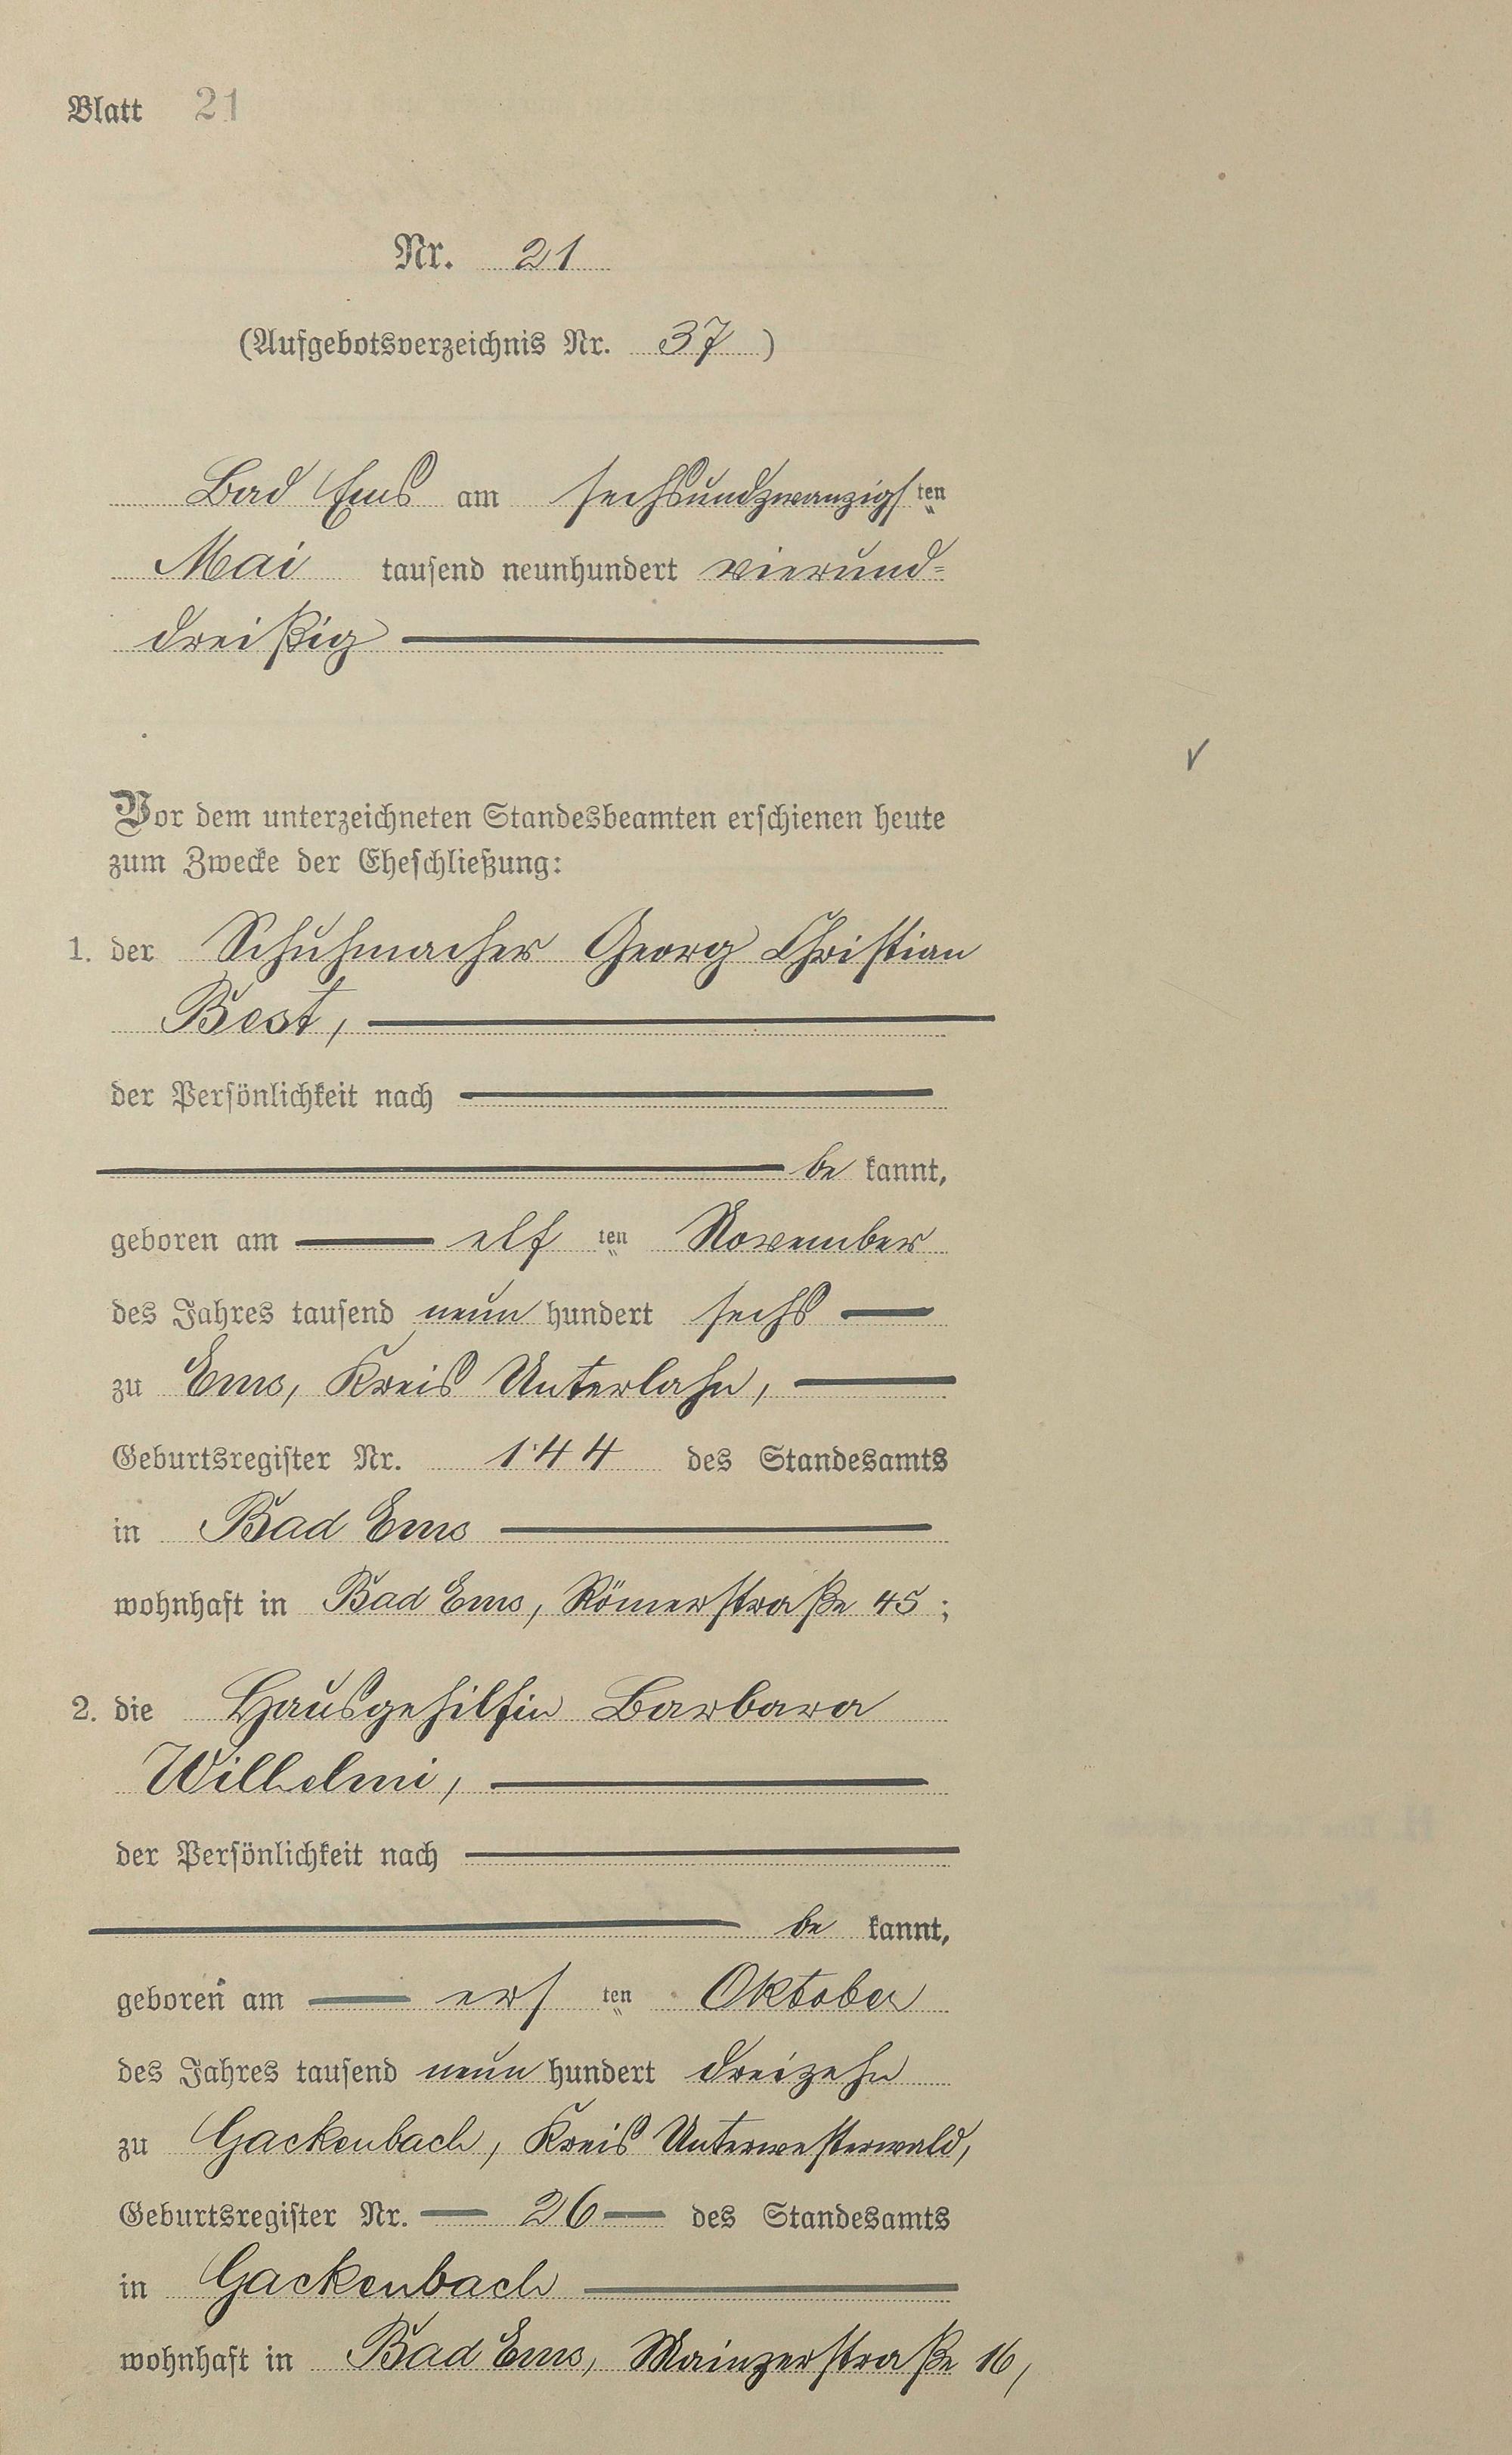 Blatt 21
Nr. 21
(Aufgebotsverzeichnis Nr. 37)
Bad Ems am sechsundzwanzigsten
Mai tausend neunhundert vierund=
dreißig
Vor dem unterzeichneten Standesbeamten erschienen heute
zum Zwecke der Eheschließung:
1. der Schuhmacher Georg Christian
Best,
der Persönlichkeit nach
be kannt,
geboren am elf ten November
des Jahres tausend neun hundert sechs
zu Ems, Kreis Unterlahn,
Geburtsregister Nr. 144 des Standesamts
in Bad Ems
wohnhaft in Bad Ems, Römerstraße 45;
2. die Hausgehilfin Barbara
Wilhelmi,
der Persönlichkeit nach
be kannt,
geboren am ers ten Oktober
des Jahres tausend neun hundert dreizehn
zu Gackenbach, Kreis Unterwesterwald,
Geburtsregister Nr. 26 des Standesamts
in Gackenbach
wohnhaft in Bad Ems, Mainzerstraße 16,